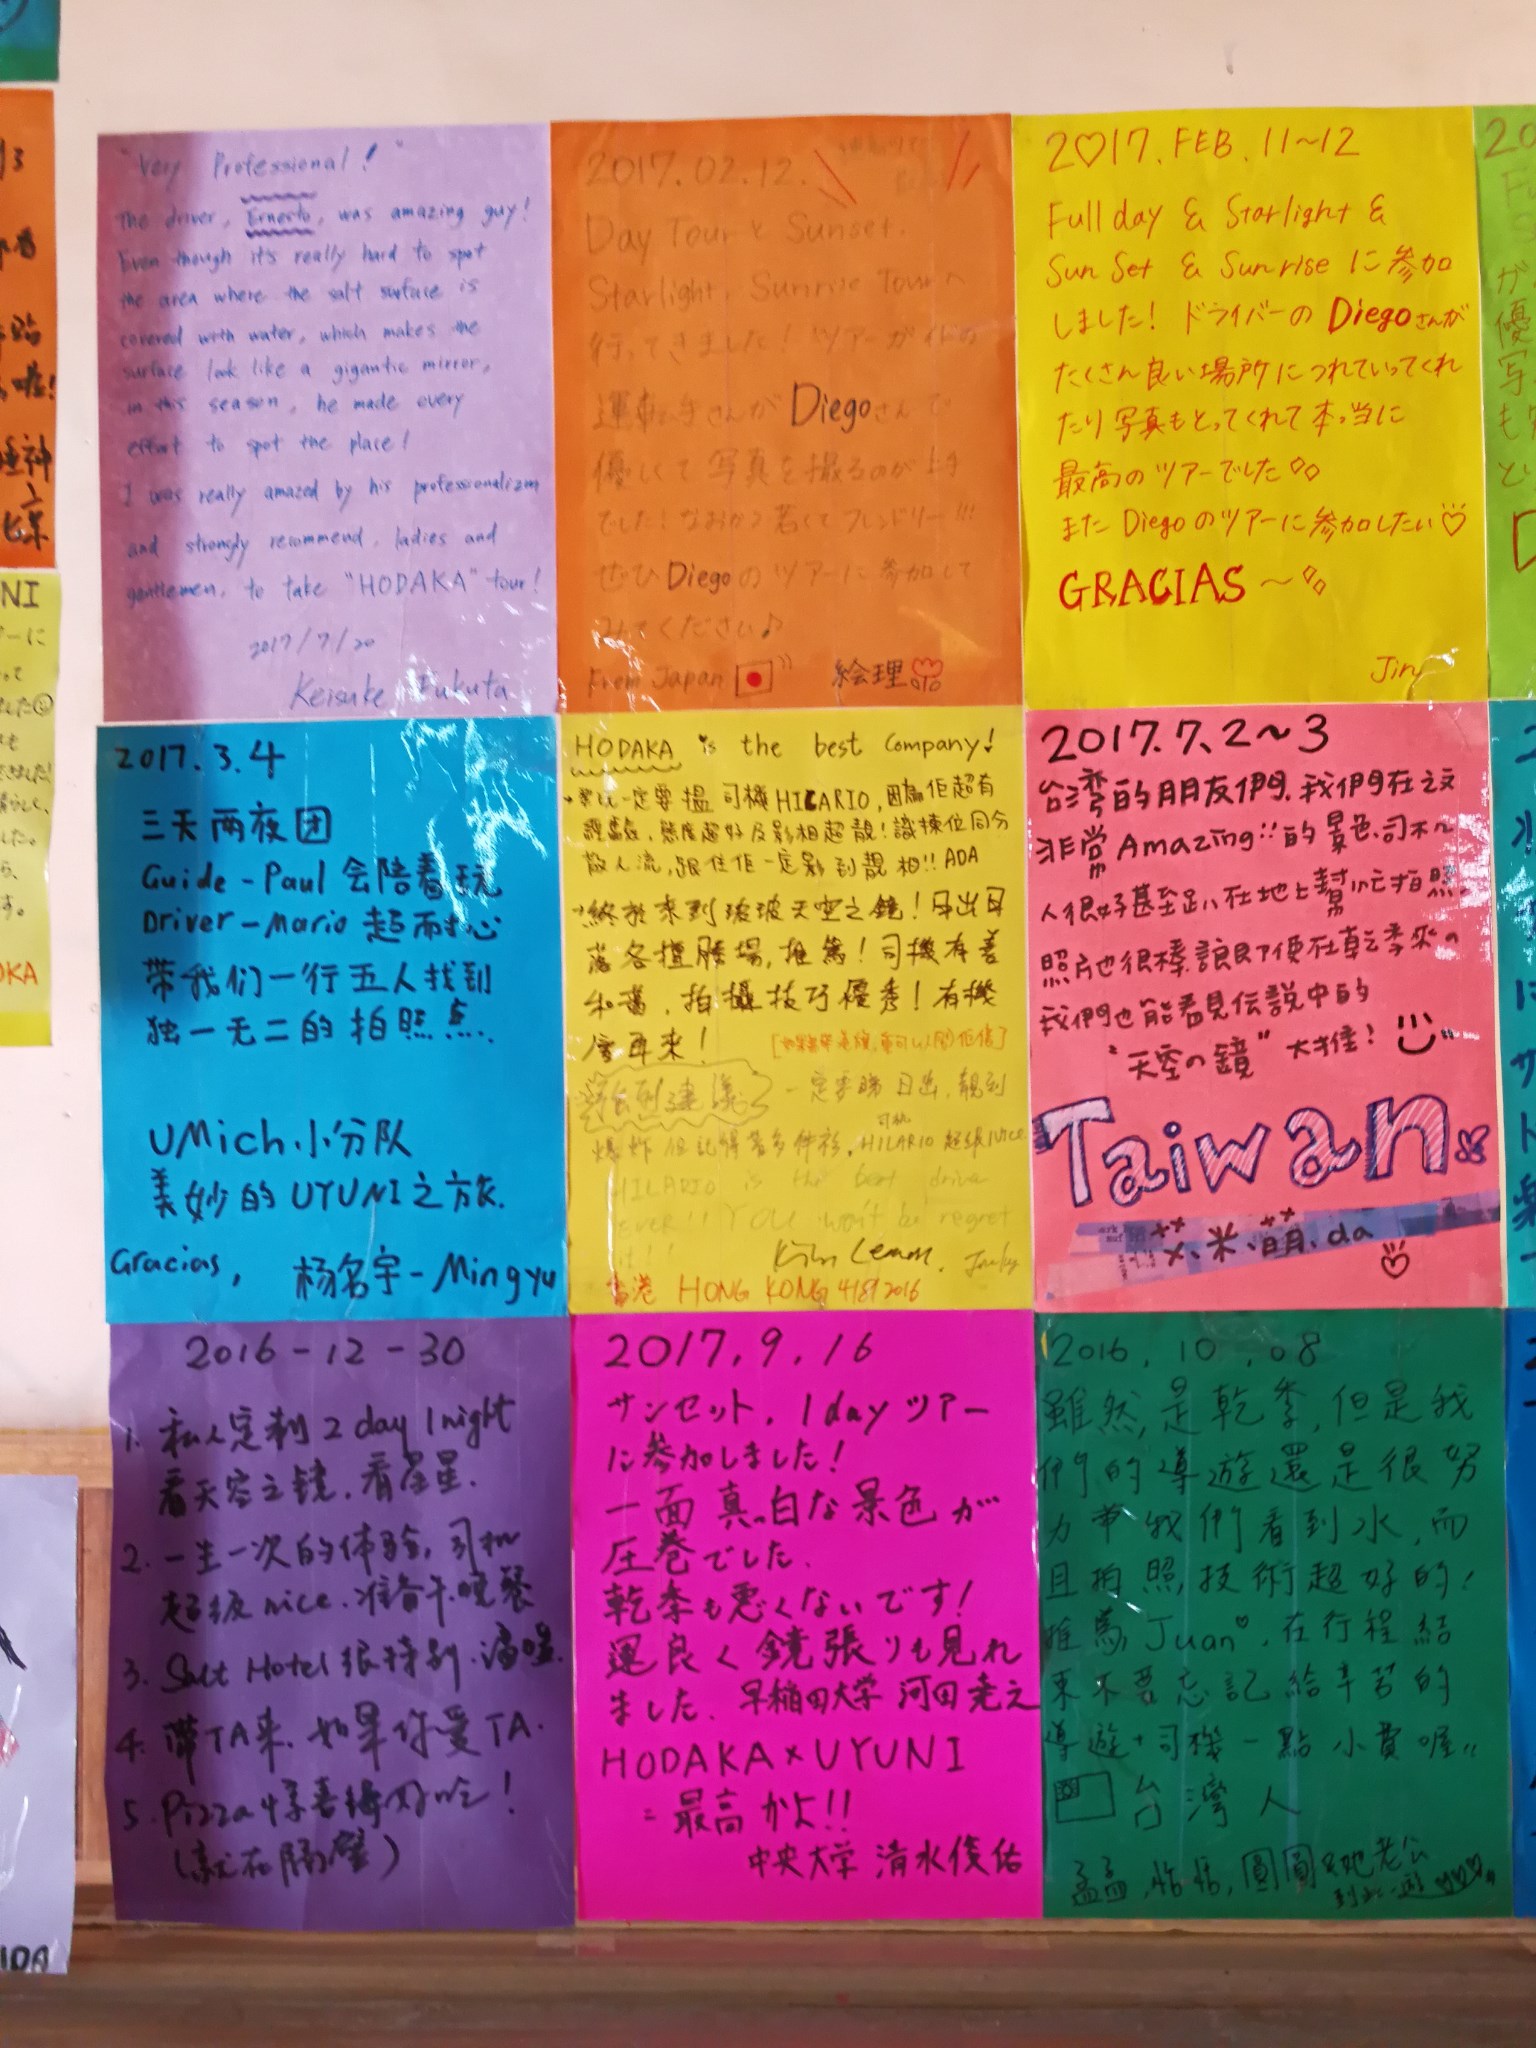 "Very Professional!"
The driver, Ernesto, was amazing guy!
Even though it's really hard to spot
the area where the salt surface is
covered with water, which makes the
surface look like a gigantic mirror,
in this season, he made every
effort to spot the place!
I was really amazed by his professionalizm
and strongly recommend, ladies and
gentlemen, to take "HODAKA" tour!
2017/7/20
Keisuke Fukuta
2017.02.12.
Day Tour と Sunset.
Starlight, Sunrise Tourへ
行ってきました! ツアーガイドの
運転手さんがDiegoさんで
優しくて写真を撮るのが上手
でした! なおかつ若くてフレンドリー!!!
ぜひDiegoのツアーに参加して
みてください♪
From Japan 絵理
2♡17. FEB. 11~12
Full day & Starlight &
Sun Set & Sunrise に参加
しました! ドライバーの Diegoさんが
たくさん良い場所につれていってくれ
たり写真もとってくれて本当に
最高のツアーでした
また Diegoのツアーに参加したい♡
GRACIAS~
Jiny
2017.3.4
三天两夜团
Guide-Paul 会陪着玩
Driver-Mario 超耐心
带我们一行五人找到
独一无二的拍照点.
UMich.小分队
美妙的UYUNI之旅.
Gracias, 杨名宇-Mingyu
HODAKA is the best company!
一定要搵司機HILARIO, 因為佢超有
經驗, 態度超好及影相超靚! 識揀位同分
散人流, 跟住佢一定影到靚相!! ADA
終於來到玻玻天空之鏡! 日出日
落各擅勝場, 推薦! 司機有善
和藹, 拍攝技巧優秀! 有機
會再來!
強烈建議 一定要睇日出, 靚到
爆炸 但記得著多件衫, 司機 HILARIO 超級nice
HILARIO is the best driver
ever!! YOU won't be regret
it!!
香港 HONG KONG 4/8/2016
2017.7.2~3
台灣的朋友們. 我們在這
非常 Amazing!! 的景色. 司機
人很好甚至趴在地上幫忙拍照
照片也很棒. 讓即便在乾季來の
我們也能看見伝説中的
"天空の鏡" 大推!
Taiwan
米.萌.da
2016-12-30
1. 私人定制 2 day 1 night
看天空之镜. 看星星.
2. 一生一次的体验, 司机
超级nice. 准备午.晚餐
3. Salt Hotel 很特别. 温暖.
4. 带TA来. 如果你爱TA.
5. Pizza 好吃!
(就在隔壁)
2017.9.16
サンセット, 1dayツアー
に参加しました!
一面真っ白な景色が
圧巻でした.
乾季も悪くないです!
運良く鏡張りも見れ
ました. 早稲田大学 河田尭之
HODAKA×UYUNI
=最高かよ!!
中央大学 清水俊佑
2016.10.08
雖然是乾季, 但是我
們的導遊還是很努
力帶我們看到水, 而
且拍照技術超好的!
推薦 Juan♡. 在行程結
束不要忘記給辛苦的
導遊+司機一點小費喔!!
台灣人
孟孟, 恬恬, 圓圓&她老公
到此一遊